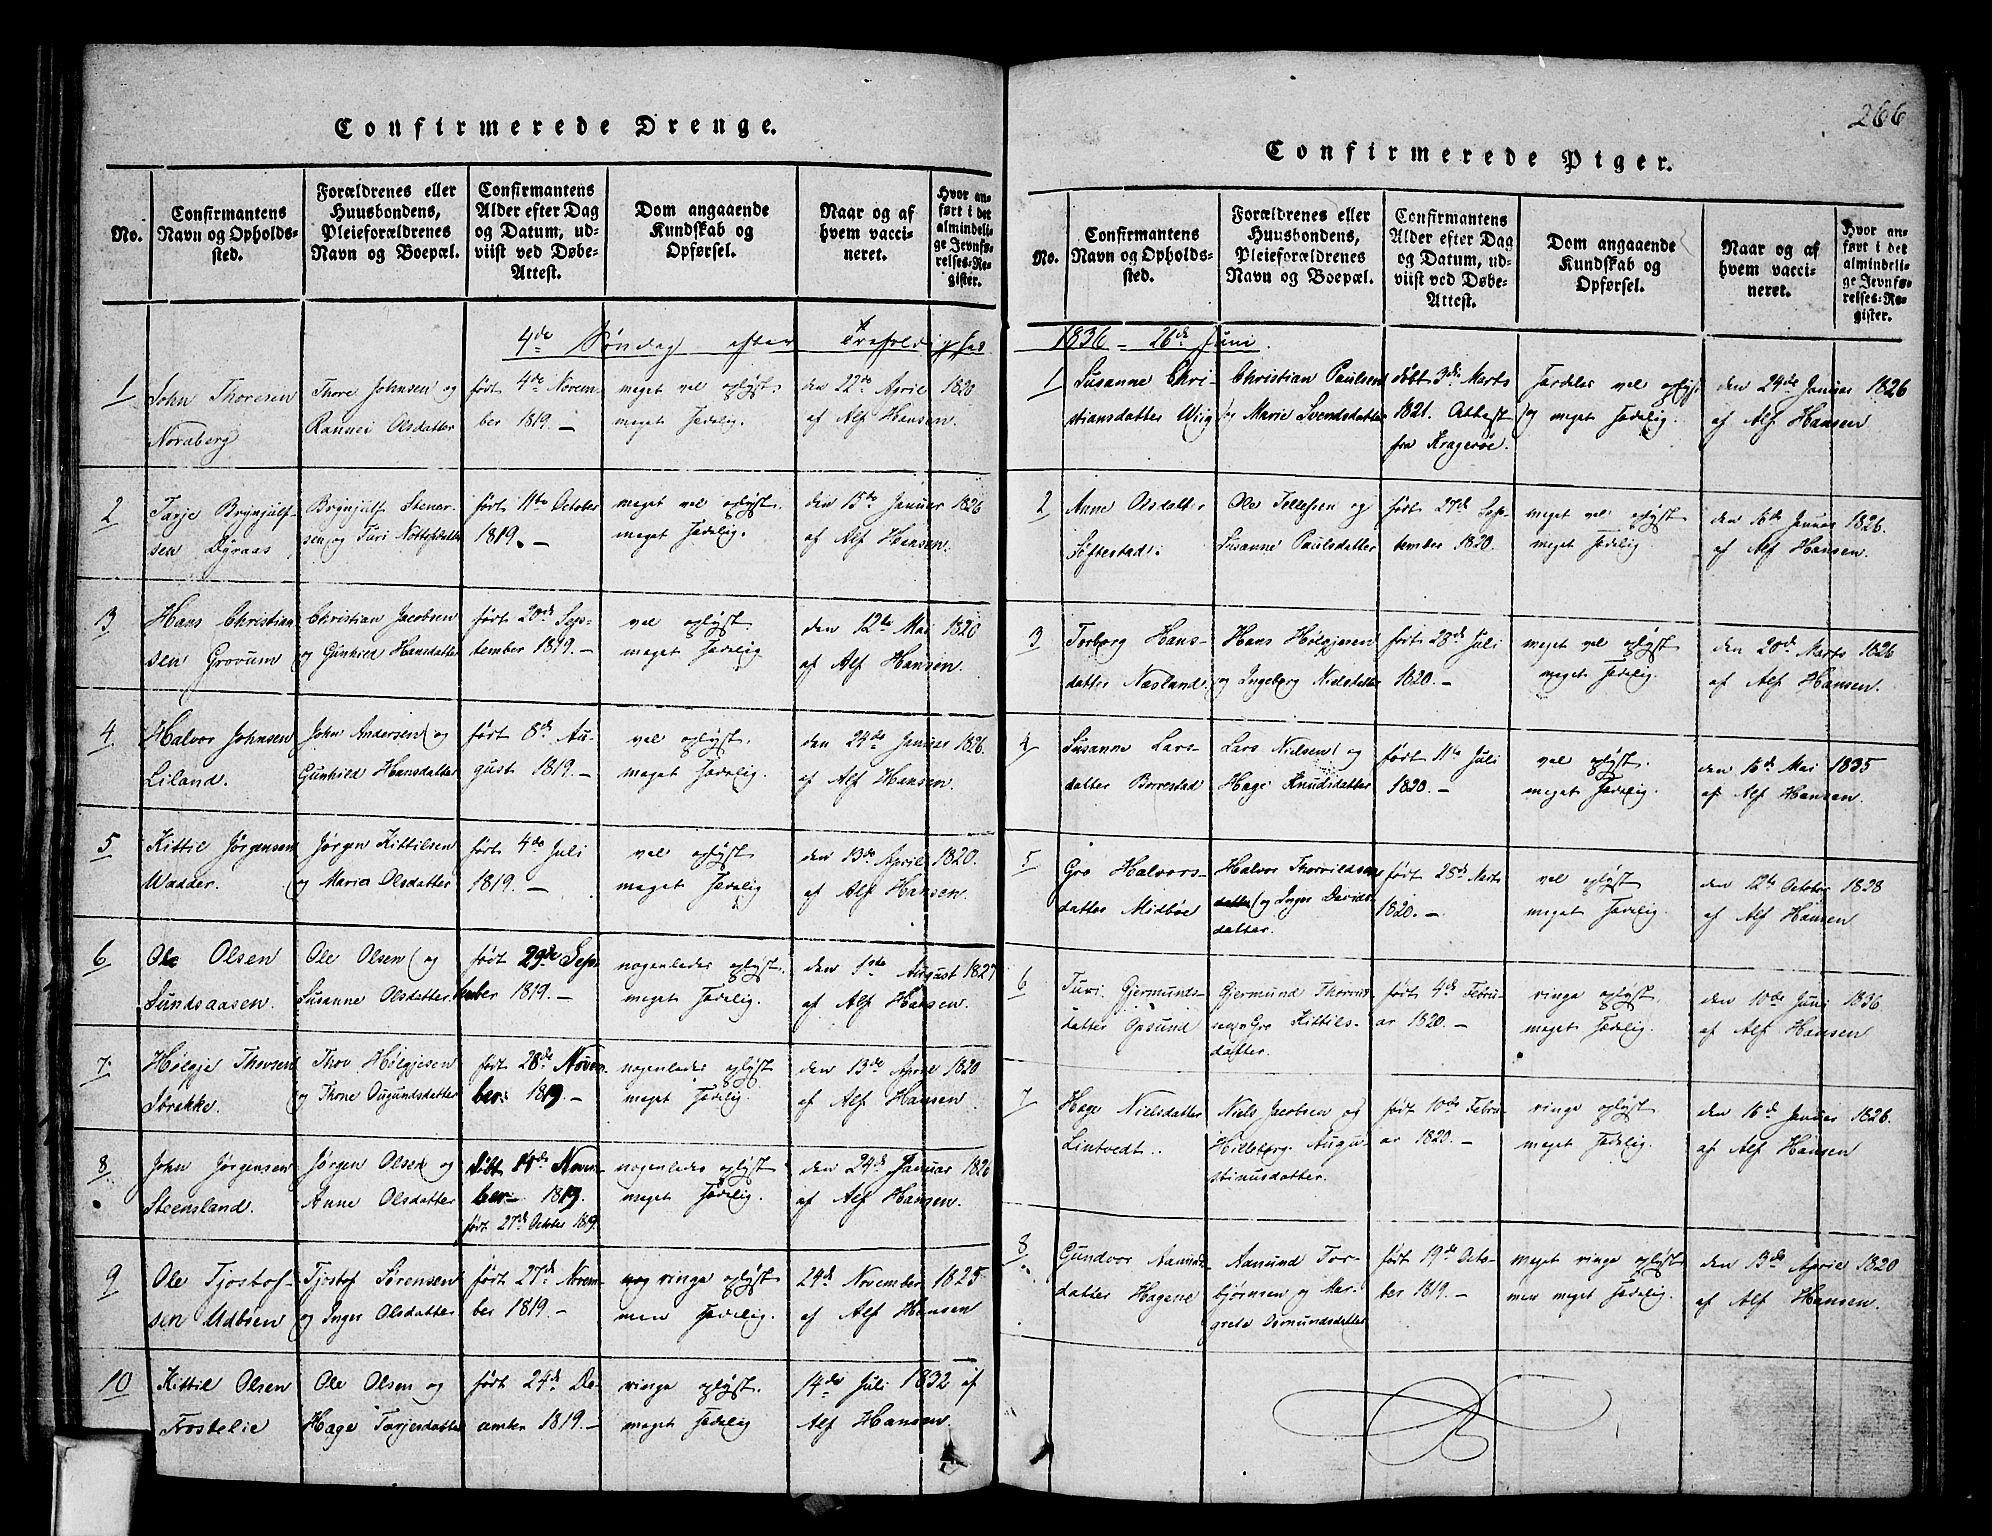 266
Confirmerede Drenge.
No.
Confirmantens
Navn og Opholds-
sted.
Forældrenes eller
Huusbondens,
Pleieforældrenes
Navn og Boepæl.
Confirmantens
Alder efter Dag
og Datum, ud-
viist ved Døbe-
Attest.
Dom angaaende
Kundskab og
Opførsel.
Naar og af
hvem vacci-
neret.
Hvor an-
ført i det
almindeli-
ge Jevnfø-
relses-Re-
gister.
4de Søndag efter Trefoldighed
1
John Thoresen
Noraberg
Thore Johnsen og
Rannei Olsdatter
født 4de Novem-
ber 1819. –
meget vel oplyst
meget sædelig.
den 22de April 1820
af Alf Hansen.
2
Tarje Brynjulf-
sen Dyraas
Brynjulf Stener-
sen og Turi
født 11te October
1819. –
meget vel oplyst.
meget sædelig.
den 15de Januar 1826
af Alf Hansen.
3
Hans Christian-
sen Grovum
Christian Jacobsen
og Gunhild Hansdatter
født 20de Sep-
tember 1819. –
vel oplyst.
meget sædelig
den 12te Mai 1820
af Alf Hansen.
4
Halvor Johnsen
Liland.
John Andersen og
Gunhild Hansdatter
født 8de Au-
gust 1819. –
vel oplyst.
meget sædelig.
den 24de Januar 1826.
af Alf Hansen.
5
Kittil Jørgensen
Wadder.
Jørgen Kittilsen
og Maria Olsdatter
født 4de Juli
1819. –
vel oplyst
meget sædelig
den 13de April 1820.
af Alf Hansen.
6
Ole Olsen
Sundsaasen.
Ole Olsen og
Susanne Olsdatter
født 29de Sep-
tember 1819. –
nogenledes oplyst.
meget sædelig.
den 1ste August 1827
af Alf Hansen.
7
Hølgje Thorsen
Strekke.
Thor Hølgjesen
og Thone Ougundsdatter
født 28de Novem-
ber 1819. –
nogenledes oplyst
meget sædelig.
den 13de April 1820
af Alf Hansen
8
John Jørgensen
Steensland.
Jørgen Olsen og
Anne Olsdatter
døbt 14de Novem-
ber – 1819.
født 27de October 1819.
nogenledes oplyst
meget sædelig.
den 24de Januar 1826
af Alf Hansen.
9
Ole Tjostof-
sen Udbsen
Tjostof Sørensen
og Inger Olsdatter
født 27de Novem-
ber 1819. –
ringe oplyst
men sædelig.
24de November 1825
af Alf Hansen
10
Kittil Olsen
Frostelie
Ole Olsen og
Hage Tarjesdatter
født 24de De-
cember 1819. –
ringe oplyst.
meget sædelig
14de Juli 1832 af
Alf Hansen.
Confirmerede Piger.
No.
Confirmantens
Navn og Opholds-
sted.
Forældrenes eller
Huusbondens,
Pleieforældrenes
Navn og Boepæl.
Confirmantens
Alder efter Dag
og Datum, ud-
viist ved Døbe-
Attest.
Dom angaaende
Kundskab og
Opførsel.
Naar og af
hvem vacci-
neret.
Hvor an-
ført i det
almindeli-
ge Jevnfø-
relses-Re-
gister.
1836 – 26de Juni.
1
Susanne Chri-
stiansdatter Wiig
Christian Paulsen
og Marie Svendsdatter
døbt 3die Marts
1821. Attest
fra Kragerøe.
særdeles vel oplyst
og meget sædelig.
den 24de Januar 1826
af Alf Hansen
2
Anne Olsdatter
Seftestad.
Ole Tellefsen og
Susanne Paulsdatter
født 27de Sep-
tember 1820.
meget vel oplyst
meget sædelig
den 16de Januar 1826.
af Alf Hansen.
3
Torborg Hans-
datter Næsland.
Hans Hølgjesen
og Ingeborg Nielsdatter
født 28de Juli
1820. –
meget vel oplyst
meget sædelig.
den 20de Marts 1826
af Alf Hansen.
4
Susanne Lars-
datter Borrestad
Lars Nielsen og
Hage Knudsdatter
født 11te Juli
1820. –
vel oplyst.
meget sædelig.
den 16de Mai 1835
af Alf Hansen.
5
Gro Halvors-
datter Midbøe
Halvor Thorvildsen
og Inger Davids-
datter.
født 28de Marts
1820. –
vel oplyst
meget sædelig.
den 12te October 1828
af Alf Hansen
6
Turi Gjermunds-
datter Opsund
Gjermund Thorvild-
sen Gro Kittils-
datter.
født 4de Febru-
ar 1820. –
ringe oplyst.
meget sædelig.
den 10de Juni 1836
af Alf Hansen
7
Hage Nielsdatter
Lintvedt.
Niels Jacobsen og
Hilleborg Augu-
stinusdatter.
født 10de Febru-
ar 1820. –
ringe oplyst
meget sædelig.
den 16de Januar 1826.
af Alf Hansen
8
Gundvor Aamunds-
datter Hagene
Aamund Tor-
bjørnsen og Mar-
grete Osmundsdatter
født 19de Octo-
ber 1819. –
meget ringe oplyst
men meget sædelig.
den 13de April 1820
af Alf Hansen.